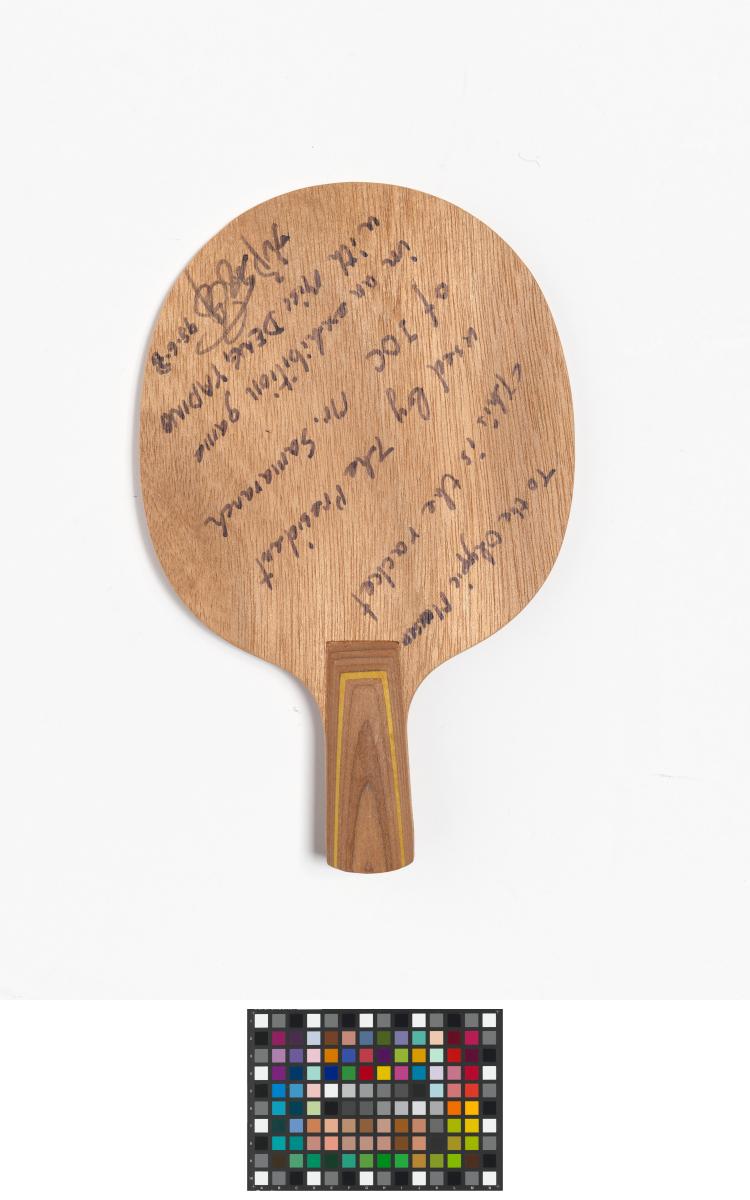 To the Olympic Museum
This is the racket
used by The President
of IOC Mr. Samaranch
in an exhibition game
with Miss DENG YAPING
95.6.8